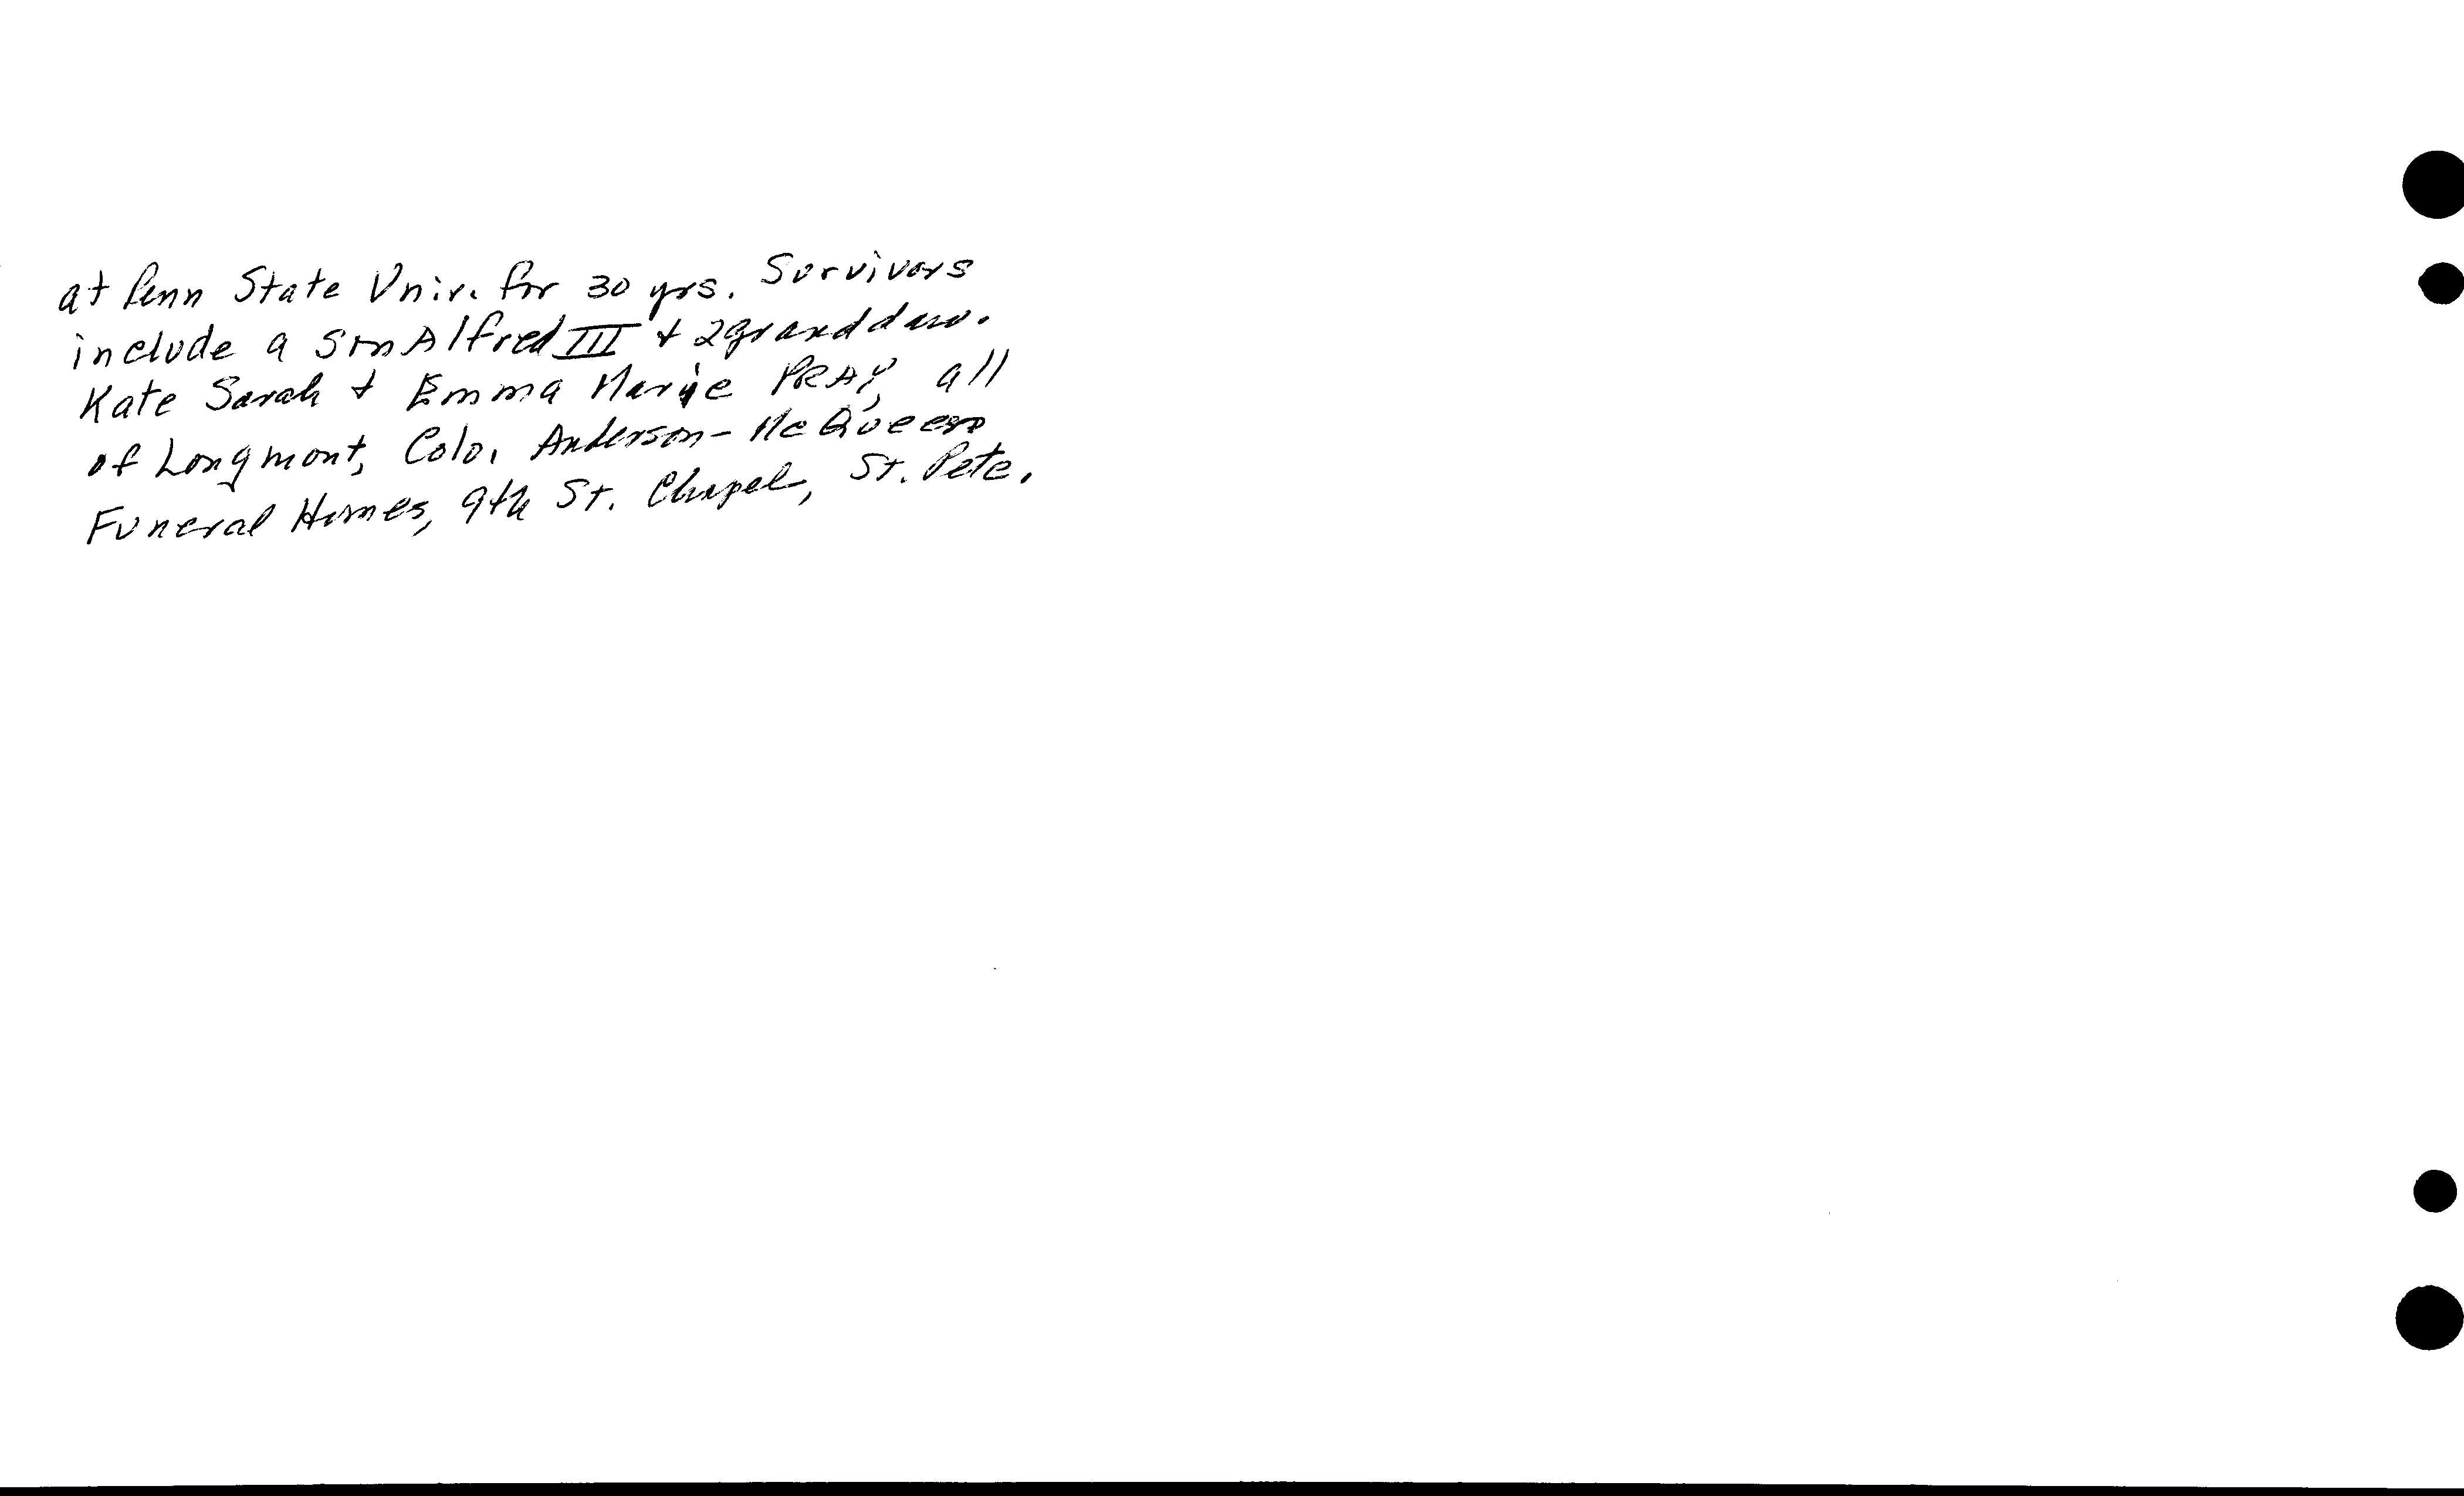 at Penn State Univ. for 30 yrs. Survivors
include a son Alfred III + 2 granddau.
Kate Sarah + Emma Marie PRAY, all
of Longmont, Colo. Anderson-McQueen
Funeral Homes, 9th St. Chapel, St. Pete.